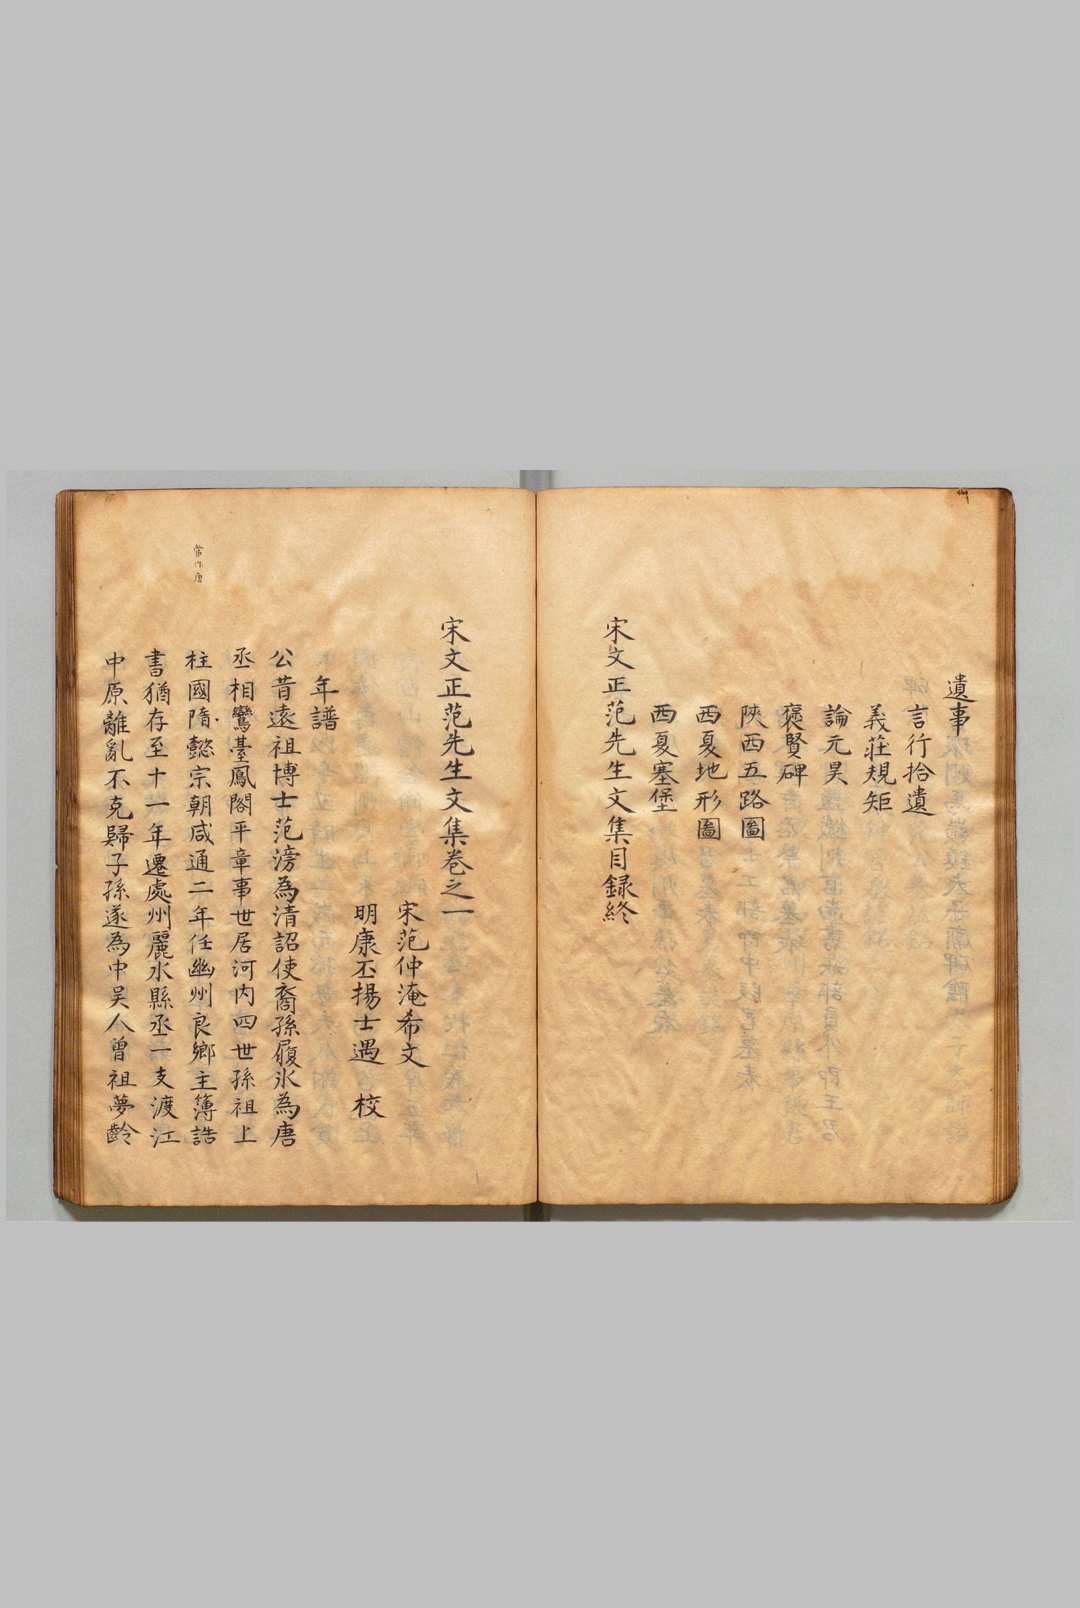 遺事
言行拾遺
義莊規矩
論元昊
褒賢碑
陝西五路圖
西夏地形圖
西夏塞堡
宋文正范先生文集目録終
宋文正范先生文集卷之一
宋范仲淹希文
明康丕揚士遇 校
年譜
公昔遠祖博士范滂為清詔使裔孫履氷為唐
丞相鸞臺鳳閣平章事世居河内四世孫祖上
柱國隋懿宗朝咸通二年任幽州良鄉主簿誥
書猶存至十一年遷處州麗水縣丞一支渡江
中原離亂不克歸子孫遂為中吴人曾祖夢齡